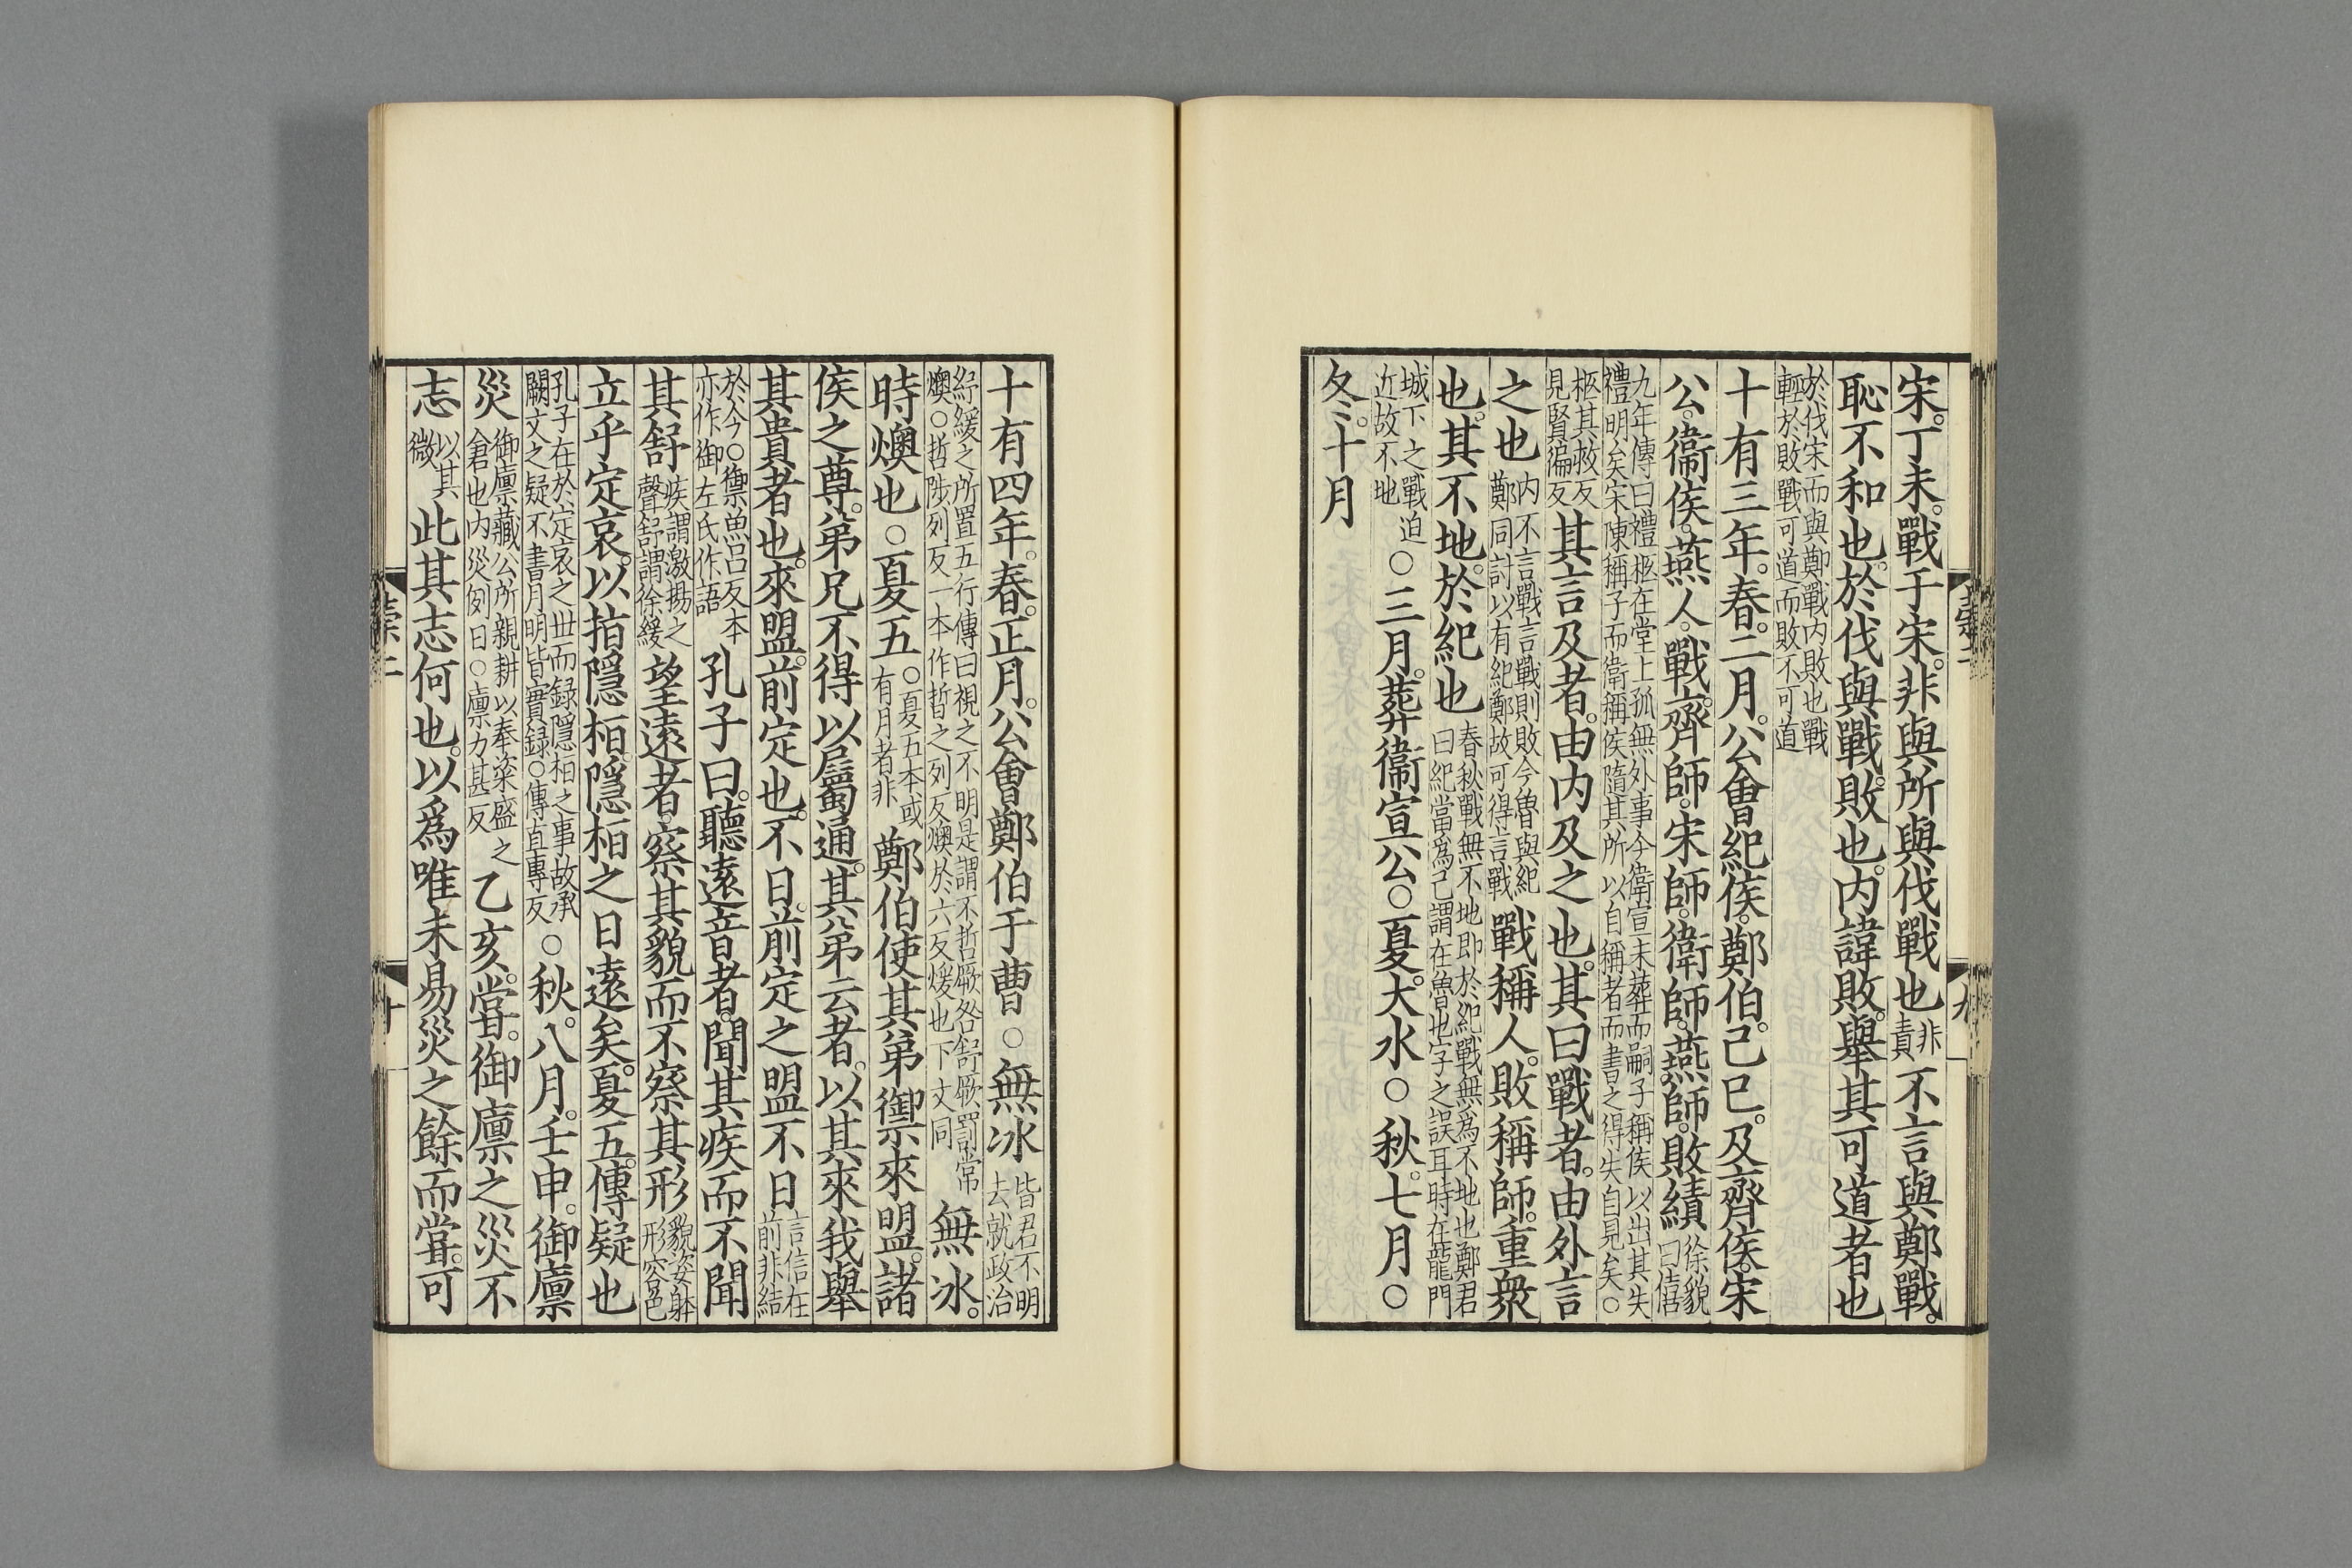 宋。丁未。戰于宋。非與所與伐戰也非責不言與鄭戰。
恥不和也。於伐與戰。敗也。内諱敗。舉其可道者也
於伐宋而與鄭戰内敗也戰輕於敗戰可道而敗不可道
十有三年。春。二月。公會紀侯。鄭伯。己巳。及齊侯。宋
公。衞侯。燕人。戰。齊師。宋師。衛師。燕師。敗績徐邈曰僖
九年傳曰禮柩在堂上孤無外事今衛宣未葬而嗣子稱侯以出其失禮明矣宋陳稱子而衛稱侯隨其所以自稱者而書之得失自見矣○
柩其救反見賢徧反其言及者。由内及之也。其曰戰者。由外言
之也内不言戰言戰則敗今魯與紀鄭同討以有紀鄭故可得言戰戰稱人。敗稱師。重衆
也。其不地。於紀也春秋戰無不地即於紀戰無爲不地也鄭君曰紀當爲己謂在魯也字之誤耳時在龍門
城下之戰迫近故不地○三月。葬衞宣公○夏。大水○秋。七月○
冬。十月
十有四年。春。正月。公會鄭伯于曹○無冰皆君不明去就政治
紓緩之所置五行傳曰視之不明是謂不哲厥咎舒厥罰常燠○哲陟列反一本作晢之列反燠於六反煖也下文同無冰。
時燠也○夏五。○夏五本或有月者非鄭伯使其弟禦來盟。諸
侯之尊。弟兄不得以屬通。其弟云者。以其來我舉
其貴者也。來盟。前定也。不日。前定之盟不日言信在前非結
於今○禦魚呂反本亦作御左氏作語孔子曰。聽遠音者。聞其疾而不聞
其舒疾謂激揚之聲舒謂徐緩望遠者。察其貌而不察其形貌姿躰形容色
立乎定哀。以指隱桓。隱桓之日遠矣。夏五。傳疑也
孔子在於定哀之世而録隱桓之事故承闕文之疑不書月明皆實録○傳直專反○秋。八月。壬申。御廩
災御廩藏公所親耕以奉粢盛之倉也内災例日○廩力甚反乙亥。嘗。御廩之災不
志以其微此其志何也。以爲唯未易災之餘而嘗。可